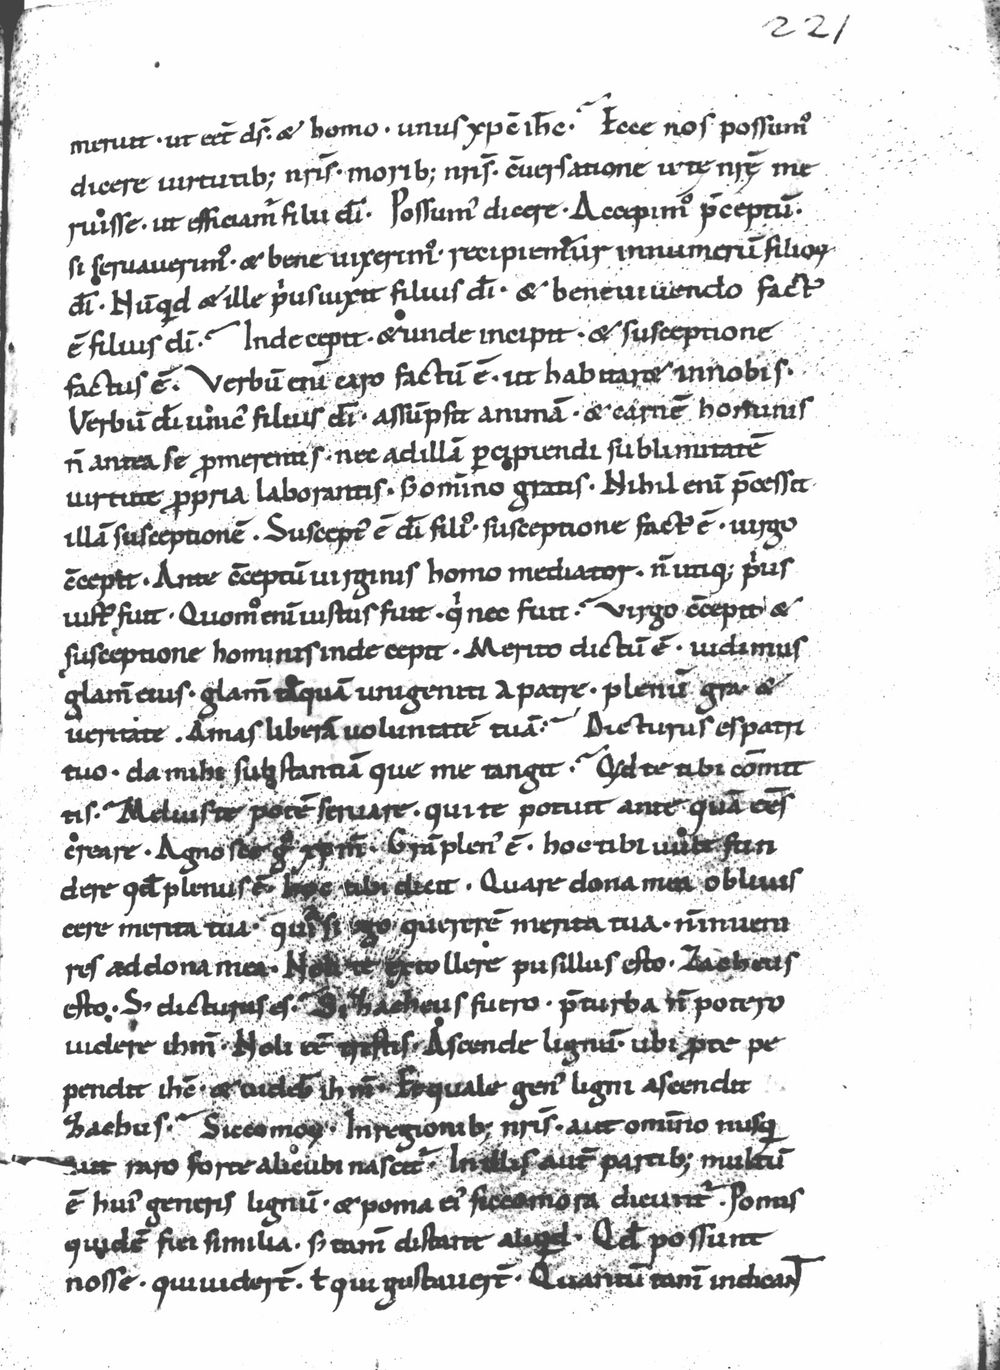 221
meruit · ut eet̄ ds̄ · & homo · unus xp̄c ih̄c · Ecce nos possumꝰ
dicere uirtutib; nr̄is · morib; nr̄is · c̄uersatione uitę nr̄ę me
ruisse · ut efficiam̄ filii dī · Possumꝰ dicere · Accepimꝰ p̄ceptū ·
si seruauerimꝰ · & bene uixerimꝰ · recipiemur in numerū filioꝝ
dī · Nūqd & ille p̍us uixit filius dī · & bene uiuendo factꝰ
ē filius dī · Inde cepit · & unde incipit · & susceptione
factus ē · Verbū eni caro factū ē · ut habitar& in nobis ·
Verbū dī unicꝰ filius dī · assūpsit animā · & carnē hominis
n̄ antea se ꝓmerentis · nec ad illā ꝑcipiendi sublimitatē
uirtute ꝓpria laborantis · S; omīno gratis · Nihil eni p̄cessit
illā susceptionē · Susceptꝰ ē dī filiꝰ · susceptione factꝰ ē · uirgo
c̄cepit · Ante c̄ceptū uirginis homo mediator · n̄ utiq; p̍us
iustꝰ fuit · Quomº eni iustus fuit · q̍ nec fuit · Virgo c̄cepit &
susceptione hominis inde cepit · Merito dictū ē · uidimus
glam̄ eius · glam̄ quā unigeniti a patre · plenū gra · &
ueritate · Amas liberā uoluntatē tuā · Dicturus es patri
tuo · da mihi substantiā que me tangit · Qd te tibi com̄it
tis · Melius te potē seruare · qui te potuit ante quā ees̄
creare · Agnosce g° xpm̄ · Grā plenꝰ ē · hoc tibi uult fun
dere qd plenus ē · hoc tibi dicit · Quare dona mea obliuis
cere merita tua · quia si ego quererē merita tua · n̄ inueni
res ad dona mea · Noli te extollere pusillus esto · Zacheus
esto · S; dicturus es · Si Zacheus fuero · p̄ turba n̄ potero
uidere ihm̄ · Noli eē tristis · Ascende lignū · ubi ꝓ te pe
pendit ihc̄ · & uidebis ihm̄ · Et quale genꝰ ligni ascendit
Zachus · Siccomoꝝ · In regionib; nr̄is · aut omīno nusq̄
aut raro forte alicubi nascit̄ · In illis aut̄ partib; multū
ē huiꝰ generis lignū · & poma eiꝰ siccomora dicunt̄ · Pomis
quidē fici similia · s; tam̄ distant aliqd · Qd possunt
nosse · qui uidert̄ · ł qui gustauert̄ · Quantū tam̄ indicant